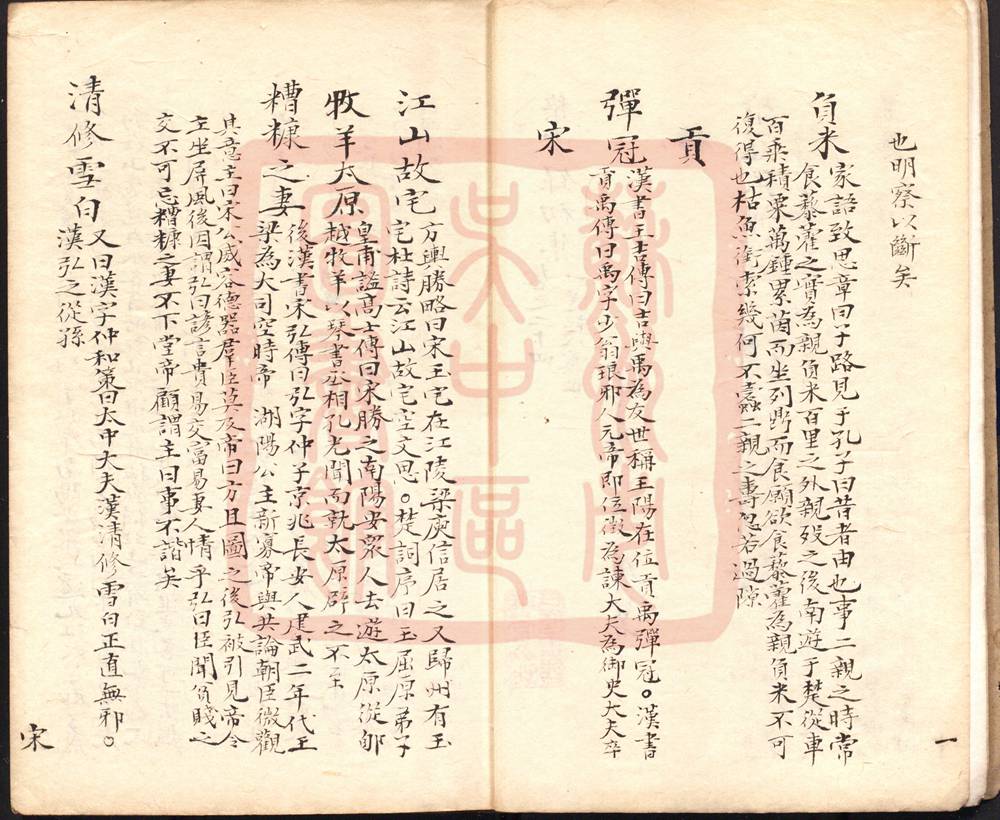 也明察以斷矣
負米
家語致思章曰子路見于孔子曰昔者由也事二親之時常
食藜藿之實為親負米百里之外親歿之後南遊于楚從車
百乘積粟萬鍾累茵而坐列鼎而食願欲食藜藿為親負米不可
復得也枯魚銜索幾何不蠹二親之壽忽若過隙
貢
彈冠
漢書王吉傳曰吉與禹為友世稱王陽在位貢禹彈冠。漢書
貢禹傳曰禹字少翁琅邪人元帝即位徵為諫大夫為御史大夫卒
宋
江山故宅
方輿勝略曰宋玉宅在江陵梁庾信居之又歸州有玉
宅杜詩云江山故宅空文思。楚詞序曰玉屈原弟子
牧羊太原
皇甫謐高士傳曰宋勝之南陽安眾人去遊太原從郇
越牧羊以琴書丞相孔光聞而就太原辟之不至
糟糠之妻
後漢書宋弘傳曰弘字仲子京兆長安人建武二年代王
梁為大司空時帝 湖陽公主新寡帝與共論朝臣微觀
其意主曰宋公威容德器群臣莫及帝曰方且圖之後弘被引見帝令
主坐屏風後因謂弘曰諺言貴易交富易妻人情乎弘曰臣聞貧賤之
交不可忘糟糠之妻不下堂帝顧謂主曰事不諧矣
清修雪白
又曰漢字仲和策曰太中大夫漢清修雪白正直無邪。
漢弘之從孫
一
宋
蘇州
吳中區